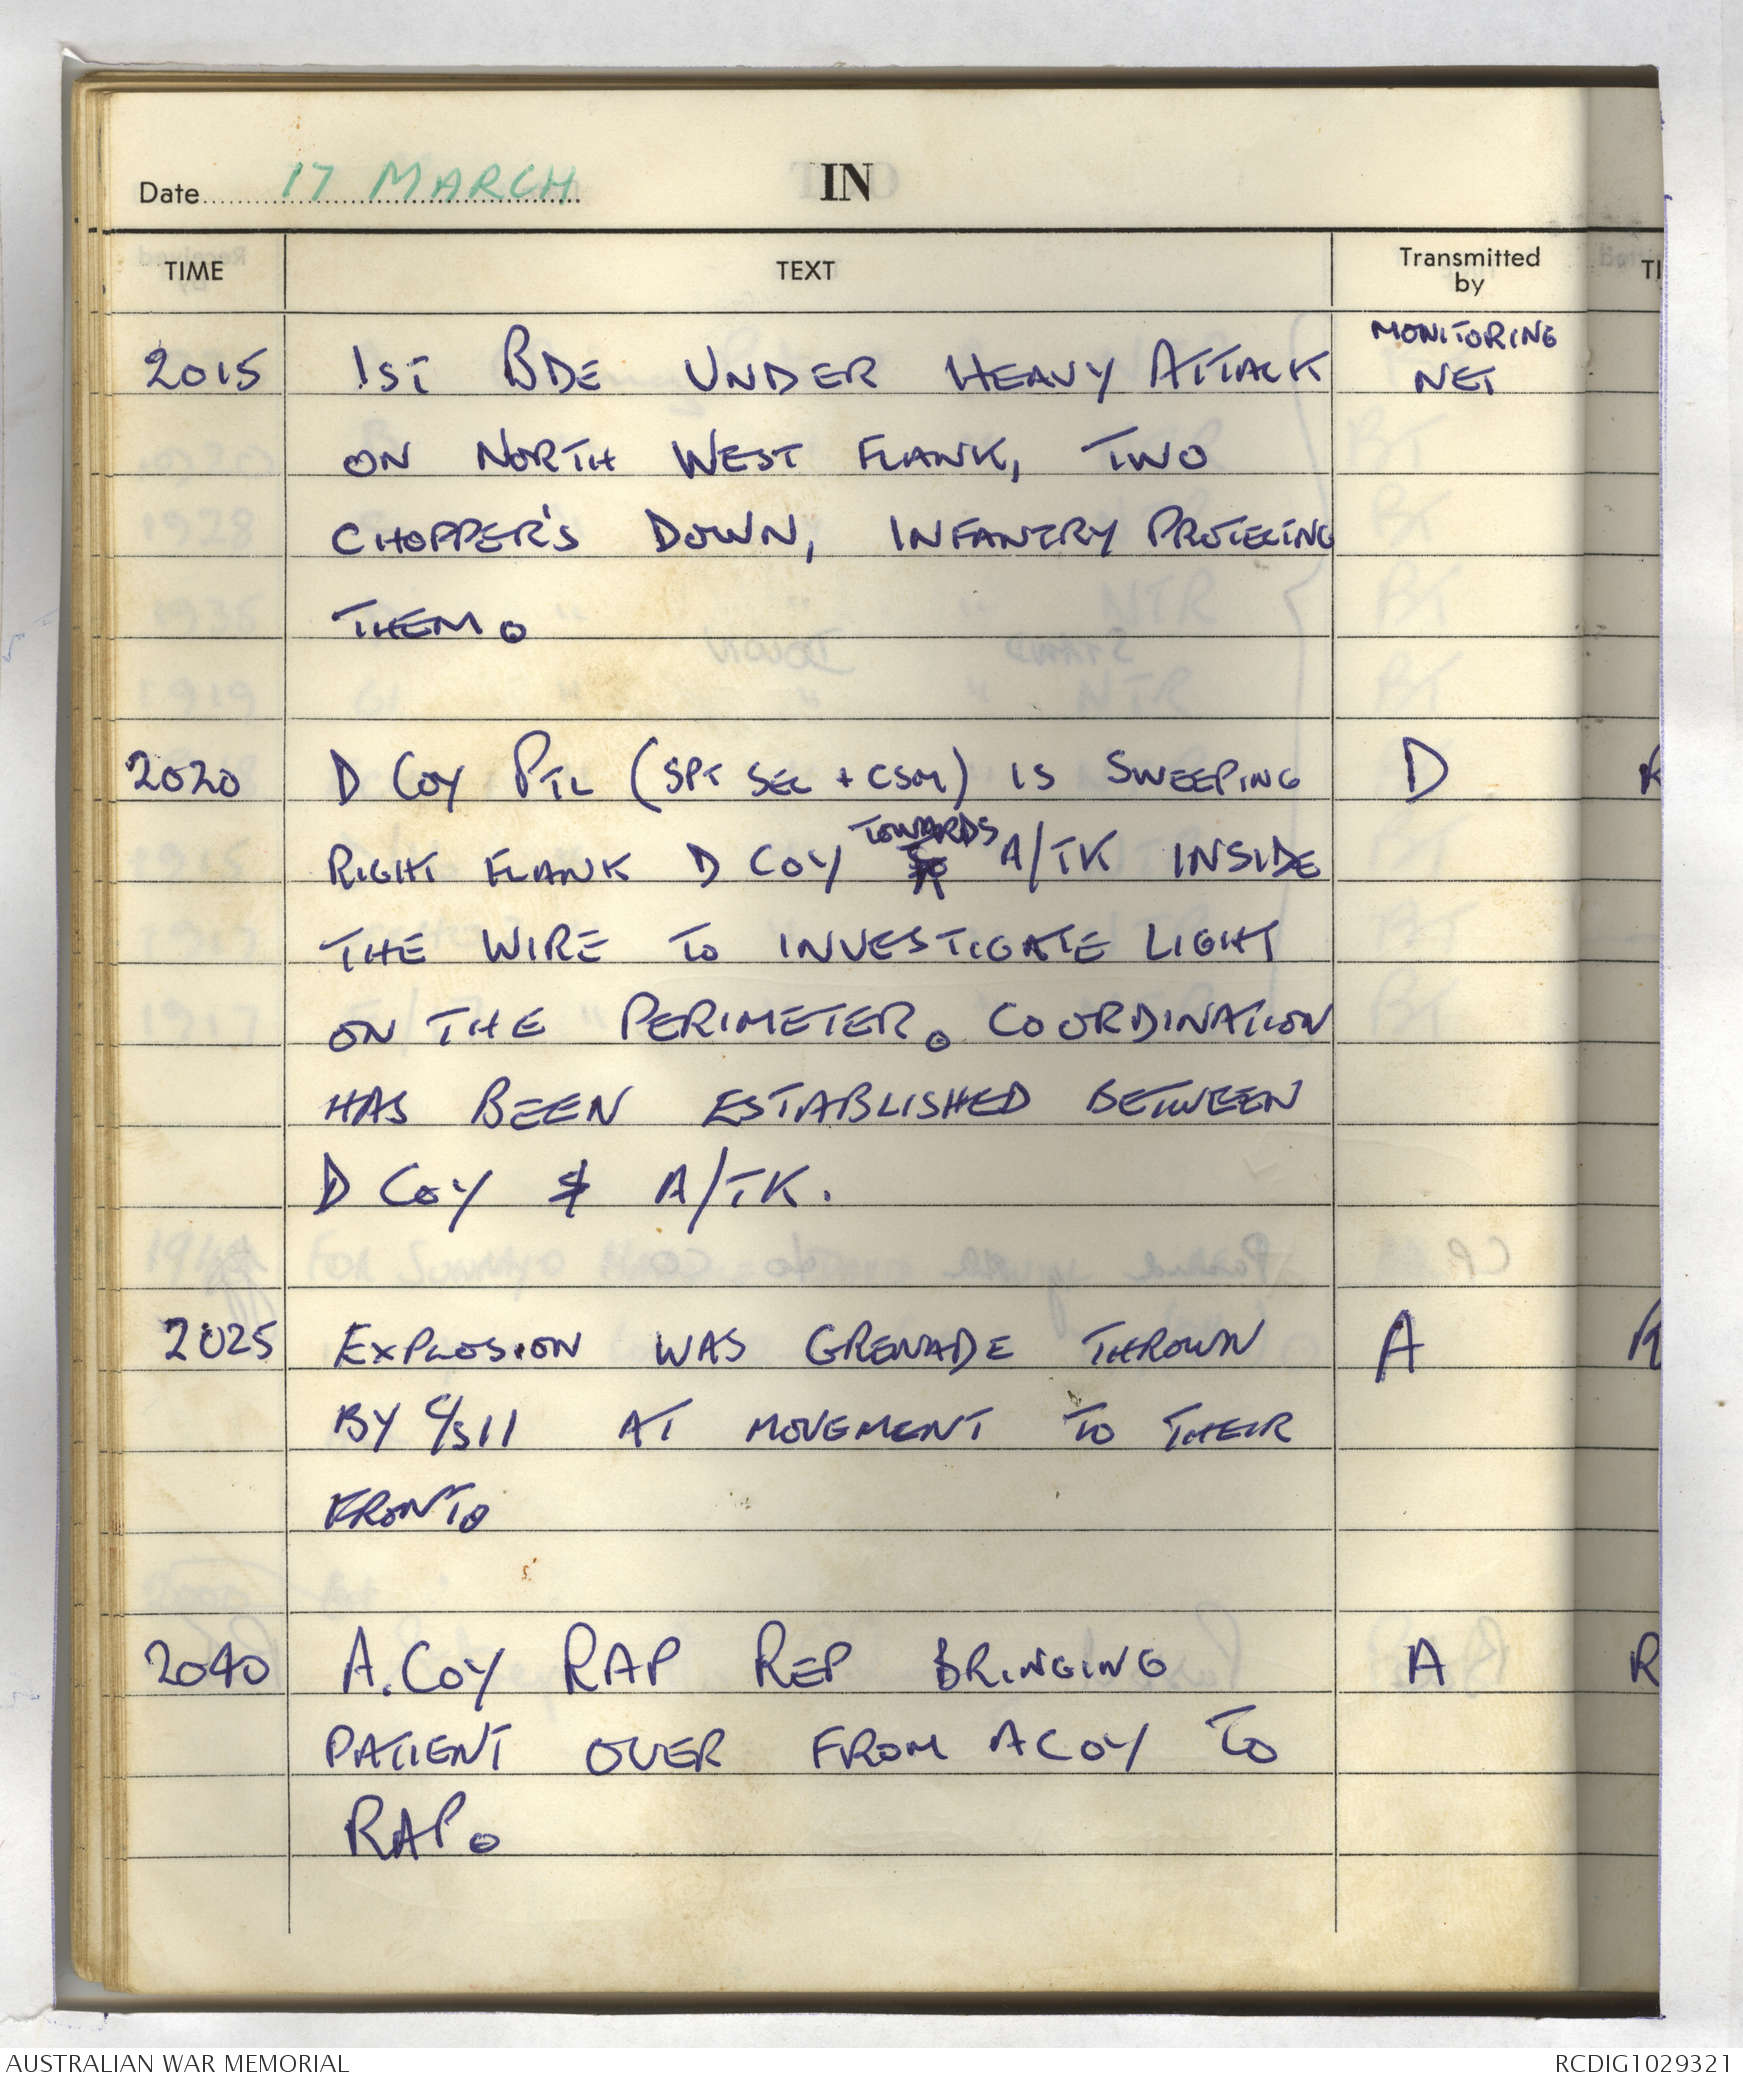 Date 17 MARCH IN
TIME TEXT Transmitted by TI
2015 1ST BDE UNDER HEAVY ATTACK MONITORING NET
ON NORTH WEST FLANK, TWO
CHOPPER'S DOWN, INFANTRY PROTECTING
THEM.
2020 D COY PTL (SPT SEC + CSM) IS SWEEPING D
RIGHT FLANK D COY TOWARDS A/TK INSIDE
THE WIRE TO INVESTIGATE LIGHT
ON THE PERIMETER. COORDINATION
HAS BEEN ESTABLISHED BETWEEN
D COY & A/TK.
2025 EXPLOSION WAS GRENADE THROWN A
BY C/S 11 AT MOVEMENT TO THEIR
FRONT.
2040 A. COY RAP REP BRINGING A R
PATIENT OVER FROM A COY TO
RAP.
AUSTRALIAN WAR MEMORIAL RCDIG1029321